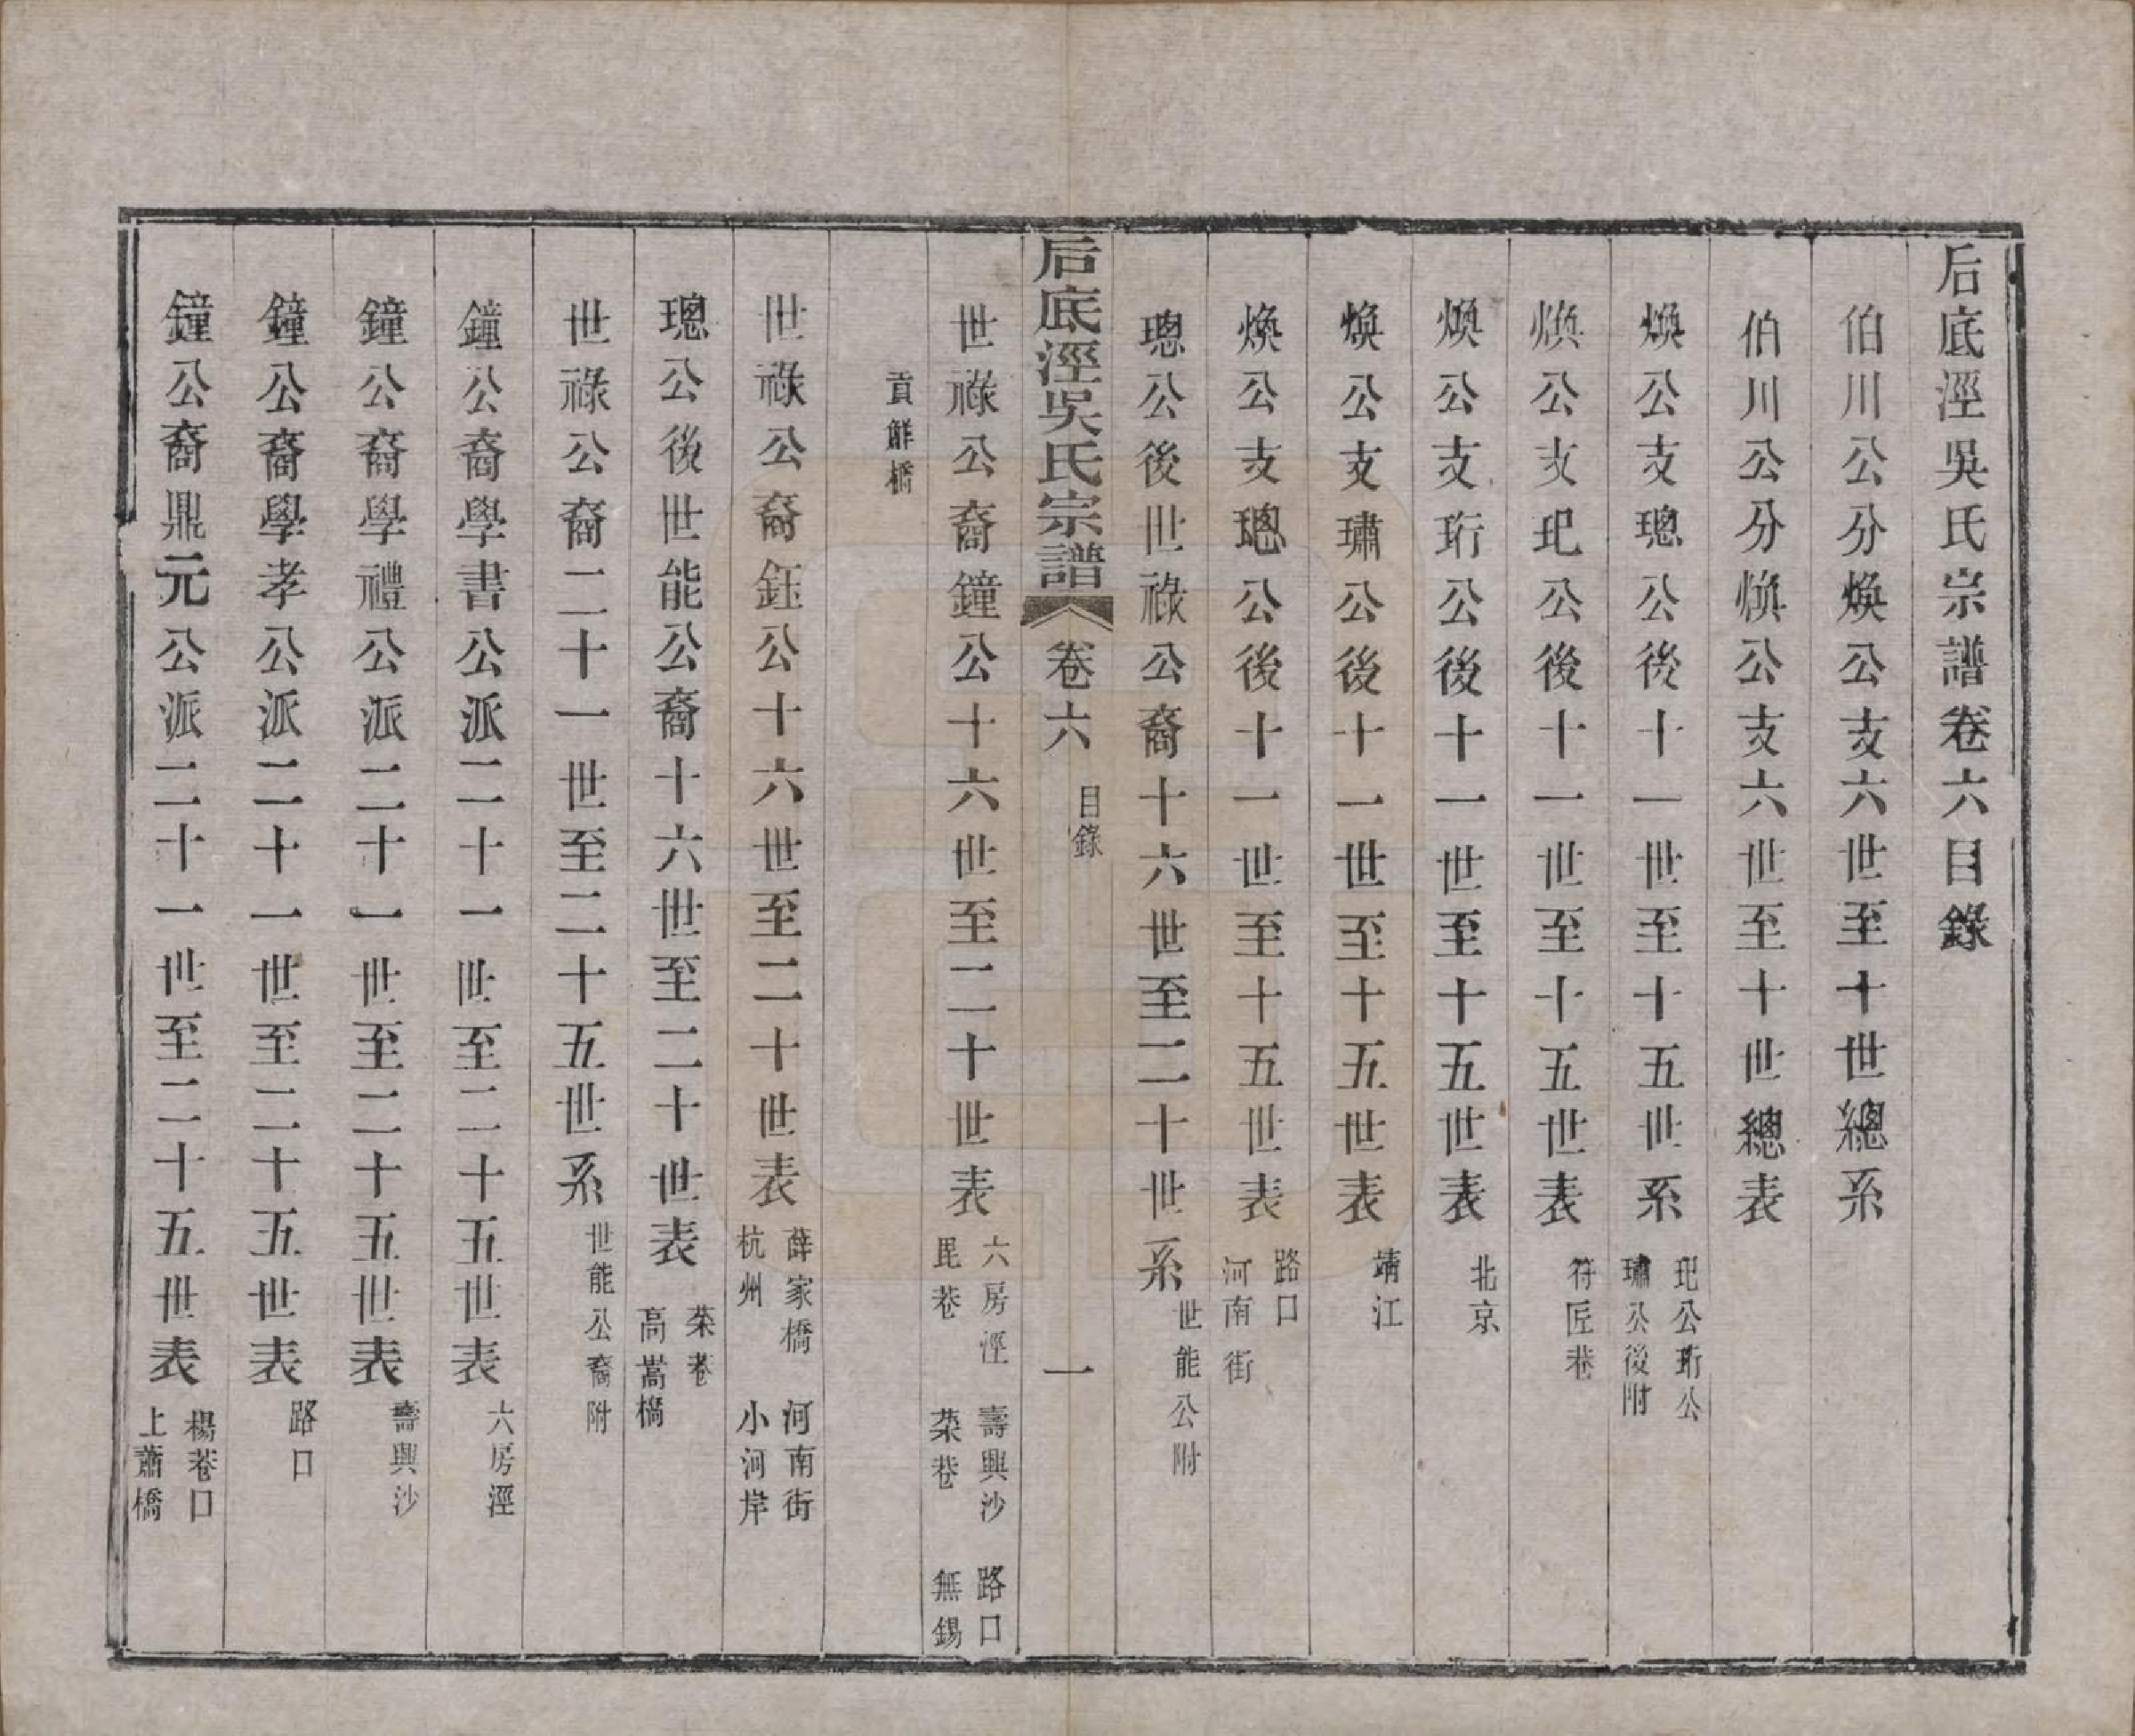 后底涇吳氏宗譜卷六目錄
伯川公分煥公支六世至十世總系
伯川公分煥公支六世至十世總表
煥公支璁公後十一世至十五世系
玘公珩公
璛公後附
煥公支玘公後十一世至十五世表
符匠巷
煥公支珩公後十一世至十五世表
北京
煥公支璛公後十一世至十五世表
靖江
煥公支璁公後十一世至十五世表
路口
河南街
璁公後世祿公裔十六世至二十世系
世能公附
后底涇吳氏宗譜 卷六 目錄 一
世祿公裔鐘公十六世至二十世表
六房涇 壽興沙 路口
毘巷 菜巷 無錫
貢鮮橋
世祿公裔鈺公十六世至二十世表
薛家橋 河南街
杭州 小河岸
璁公後世能公裔十六世至二十世表
菜巷
高嵩橋
世祿公裔二十一世至二十五世系
世能公裔附
鐘公裔學書公派二十一世至二十五世表
六房涇
鐘公裔學禮公派二十一世至二十五世表
壽興沙
鐘公裔學孝公派二十一世至二十五世表
路口
鐘公裔鼎元公派二十一世至二十五世表
楊巷口
上蕭橋